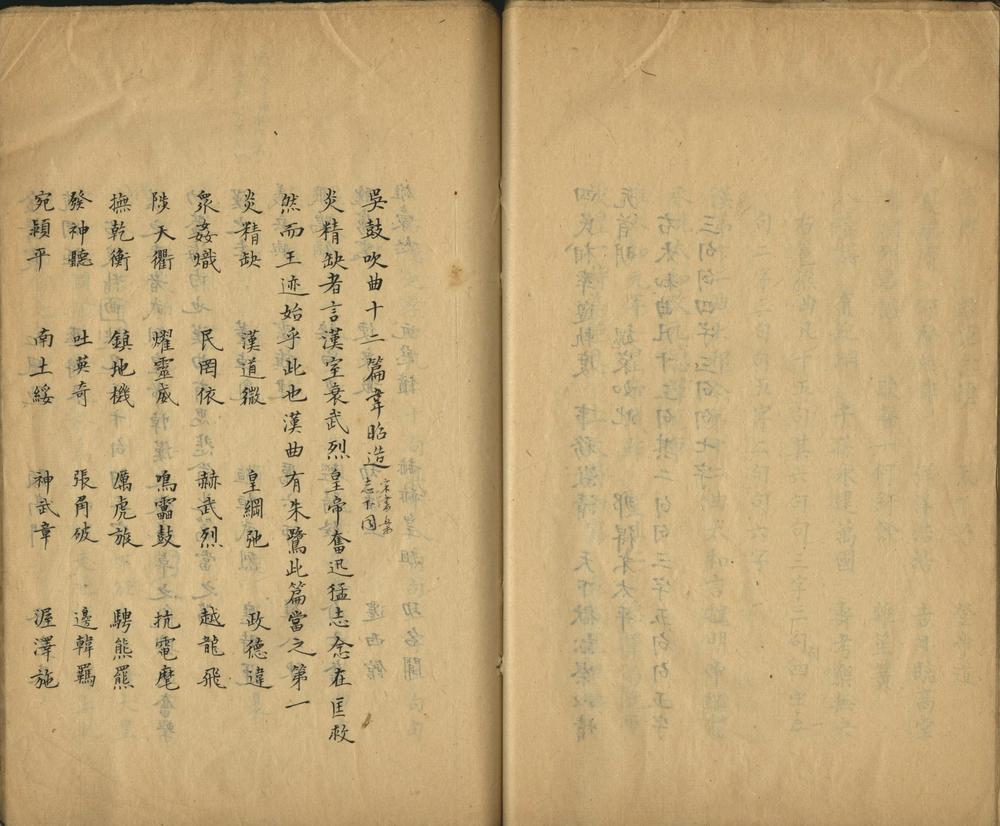 吳鼓吹曲十二篇韋昭造宋書樂志下同
炎精缺者言漢室衰武烈皇帝奮迅猛志念在匡救
然而王迹始乎此也漢曲有朱鷺此篇當之第一
炎精缺 漢道微 皇綱弛 政德違
衆姦熾 民罔依 赫武烈 越龍飛
陟天衢 燿靈威 鳴靁鼓 抗電麾
撫乾衡 鎮地機 厲虎旅 騁熊羆
發神聽 吐英奇 張角破 邊韓羈
宛潁平 南土綏 神武章 渥澤施